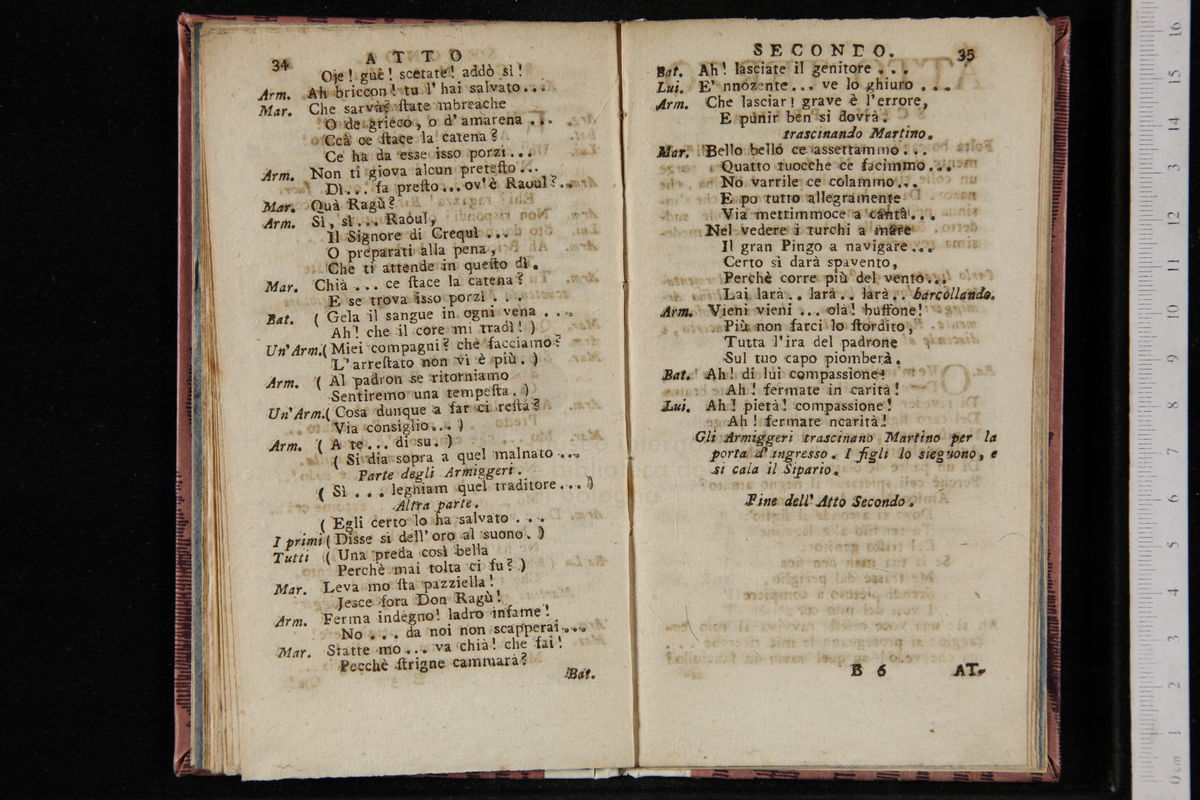 34 ATTO
Oje! guè! scetate! addò sì!
Arm. Ah briccon! tu l'hai salvato...
Mar. Che sarvà? ſtate mbreache
O de grieco, o d'amarena ...
Ccà ce ſtace la catena?
Ce ha da esse isso porzì...
Arm. Non ti giova alcun preteſto...
Dì... fa preſto... ov'è Raoul?...
Mar. Quà Ragù?
Arm. Sì, sì... Raoul,
Il Signore di Crequì ...
O preparati alla pena,
Che ti attende in queſto dì.
Mar. Chià ... ce ſtace la catena?
E se trova isso porzì . . .
Bat. ( Gela il sangue in ogni vena . . .
Ah! che il core mi tradì! )
Un'Arm.( Miei compagni? che facciamo?
L'arreſtato non vi è più. )
Arm. ( Al padron se ritorniamo
Sentiremo una tempeſta. )
Un'Arm.( Cosa dunque a far ci reſta?
Via consiglio... )
Arm. ( A te... di su. )
( Si dia sopra a quel malnato ...
Parte degli Armiggeri.
( Sì ... leghiam quel traditore... )
Altra parte.
( Egli certo lo ha salvato . . .
I primi ( Disse si dell'oro al suono. )
Tutti ( Una preda così bella
Perchè mai tolta ci fu? )
Mar. Leva mo ſta pazziella!
Jesce fora Don Ragù!
Arm. Ferma indegno! ladro infame!
No ... da noi non scapperai....
Mar. Statte mo... va chià! che fai!
Pecchè ſtrigne cammarà?
Bat.
SECONDO. 35
Bat. Ah! lasciate il genitore ...
Lui. E' nnozente... ve lo ghiuro ...
Arm. Che lasciar! grave è l'errore,
E punir ben si dovrà.
trascinando Martino.
Mar. Bello bello ce assettammo...
Quatto tuocche ce facimmo...
No varrile ce colammo...
E po tutto allegramente
Via mettimmoce a cantà...
Nel vedere i turchi a mare
Il gran Pingo a navigare...
Certo si darà spavento,
Perchè corre più del vento...
Lai larà.. larà.. larà.. barcollando.
Arm. Vieni vieni ... olà! buffone!
Più non farci lo ſtordito,
Tutta l'ira del padrone
Sul tuo capo piomberà.
Bat. Ah! di lui compassione!
Ah! fermate in carità!
Lui. Ah! pietà! compassione!
Ah! fermate ncarità!
Gli Armiggeri trascinano Martino per la
porta d'ingresso. I figli lo sieguono, e
si cala il Sipario.
Fine dell'Atto Secondo.
B 6 AT-